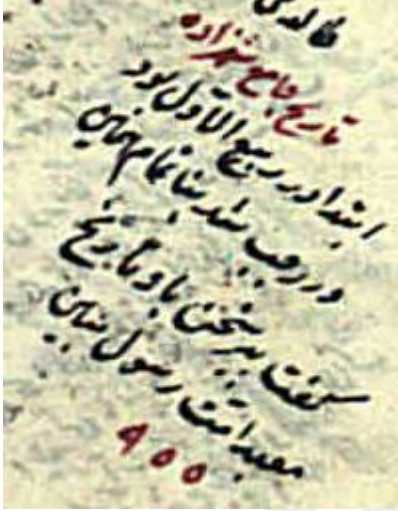 تاریخ جامع شهزاده
ابتدا در ربیع الاول بود
در رجب شد بنا تمام همین
گفت پیر سخن باو تاریخ
معبد امت رسول مبین
٩٥٥